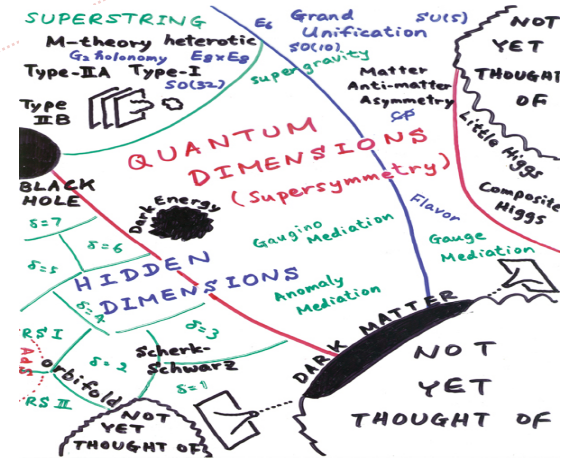 SUPERSTRING
M-theory heterotic
G2 holonomy E8xE8
Type-IIA Type-I
SO(32)
Type
IIB
E6 Grand
Unification
SU(5)
SO(10)
supergravity
Matter
Anti-matter
Asymmetry
CP
NOT
YET
THOUGHT
OF
Little Higgs
Composite
Higgs
QUANTUM
DIMENSIONS
(Supersymmetry)
BLACK
HOLE
Dark Energy
Flavor
Gaugino
Mediation
Gauge
Mediation
Anomaly
Mediation
δ=7
δ=6
δ=5
HIDDEN
DIMENSIONS
δ=4
δ=3
RS I
AdS
δ=2
Scherk-
Schwarz
orbifold
δ=1
RS II
DARK MATTER
NOT
YET
THOUGHT OF
NOT
YET
THOUGHT OF